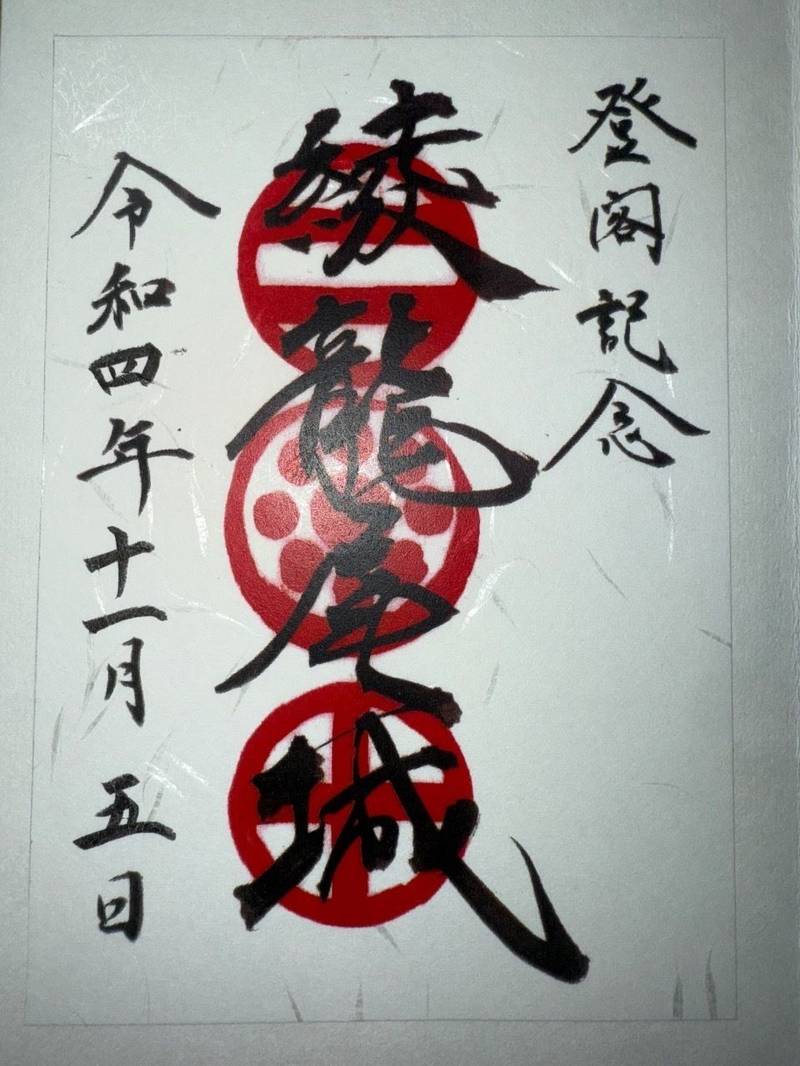 登閣記念
綾龍尾城
令和四年十一月五日